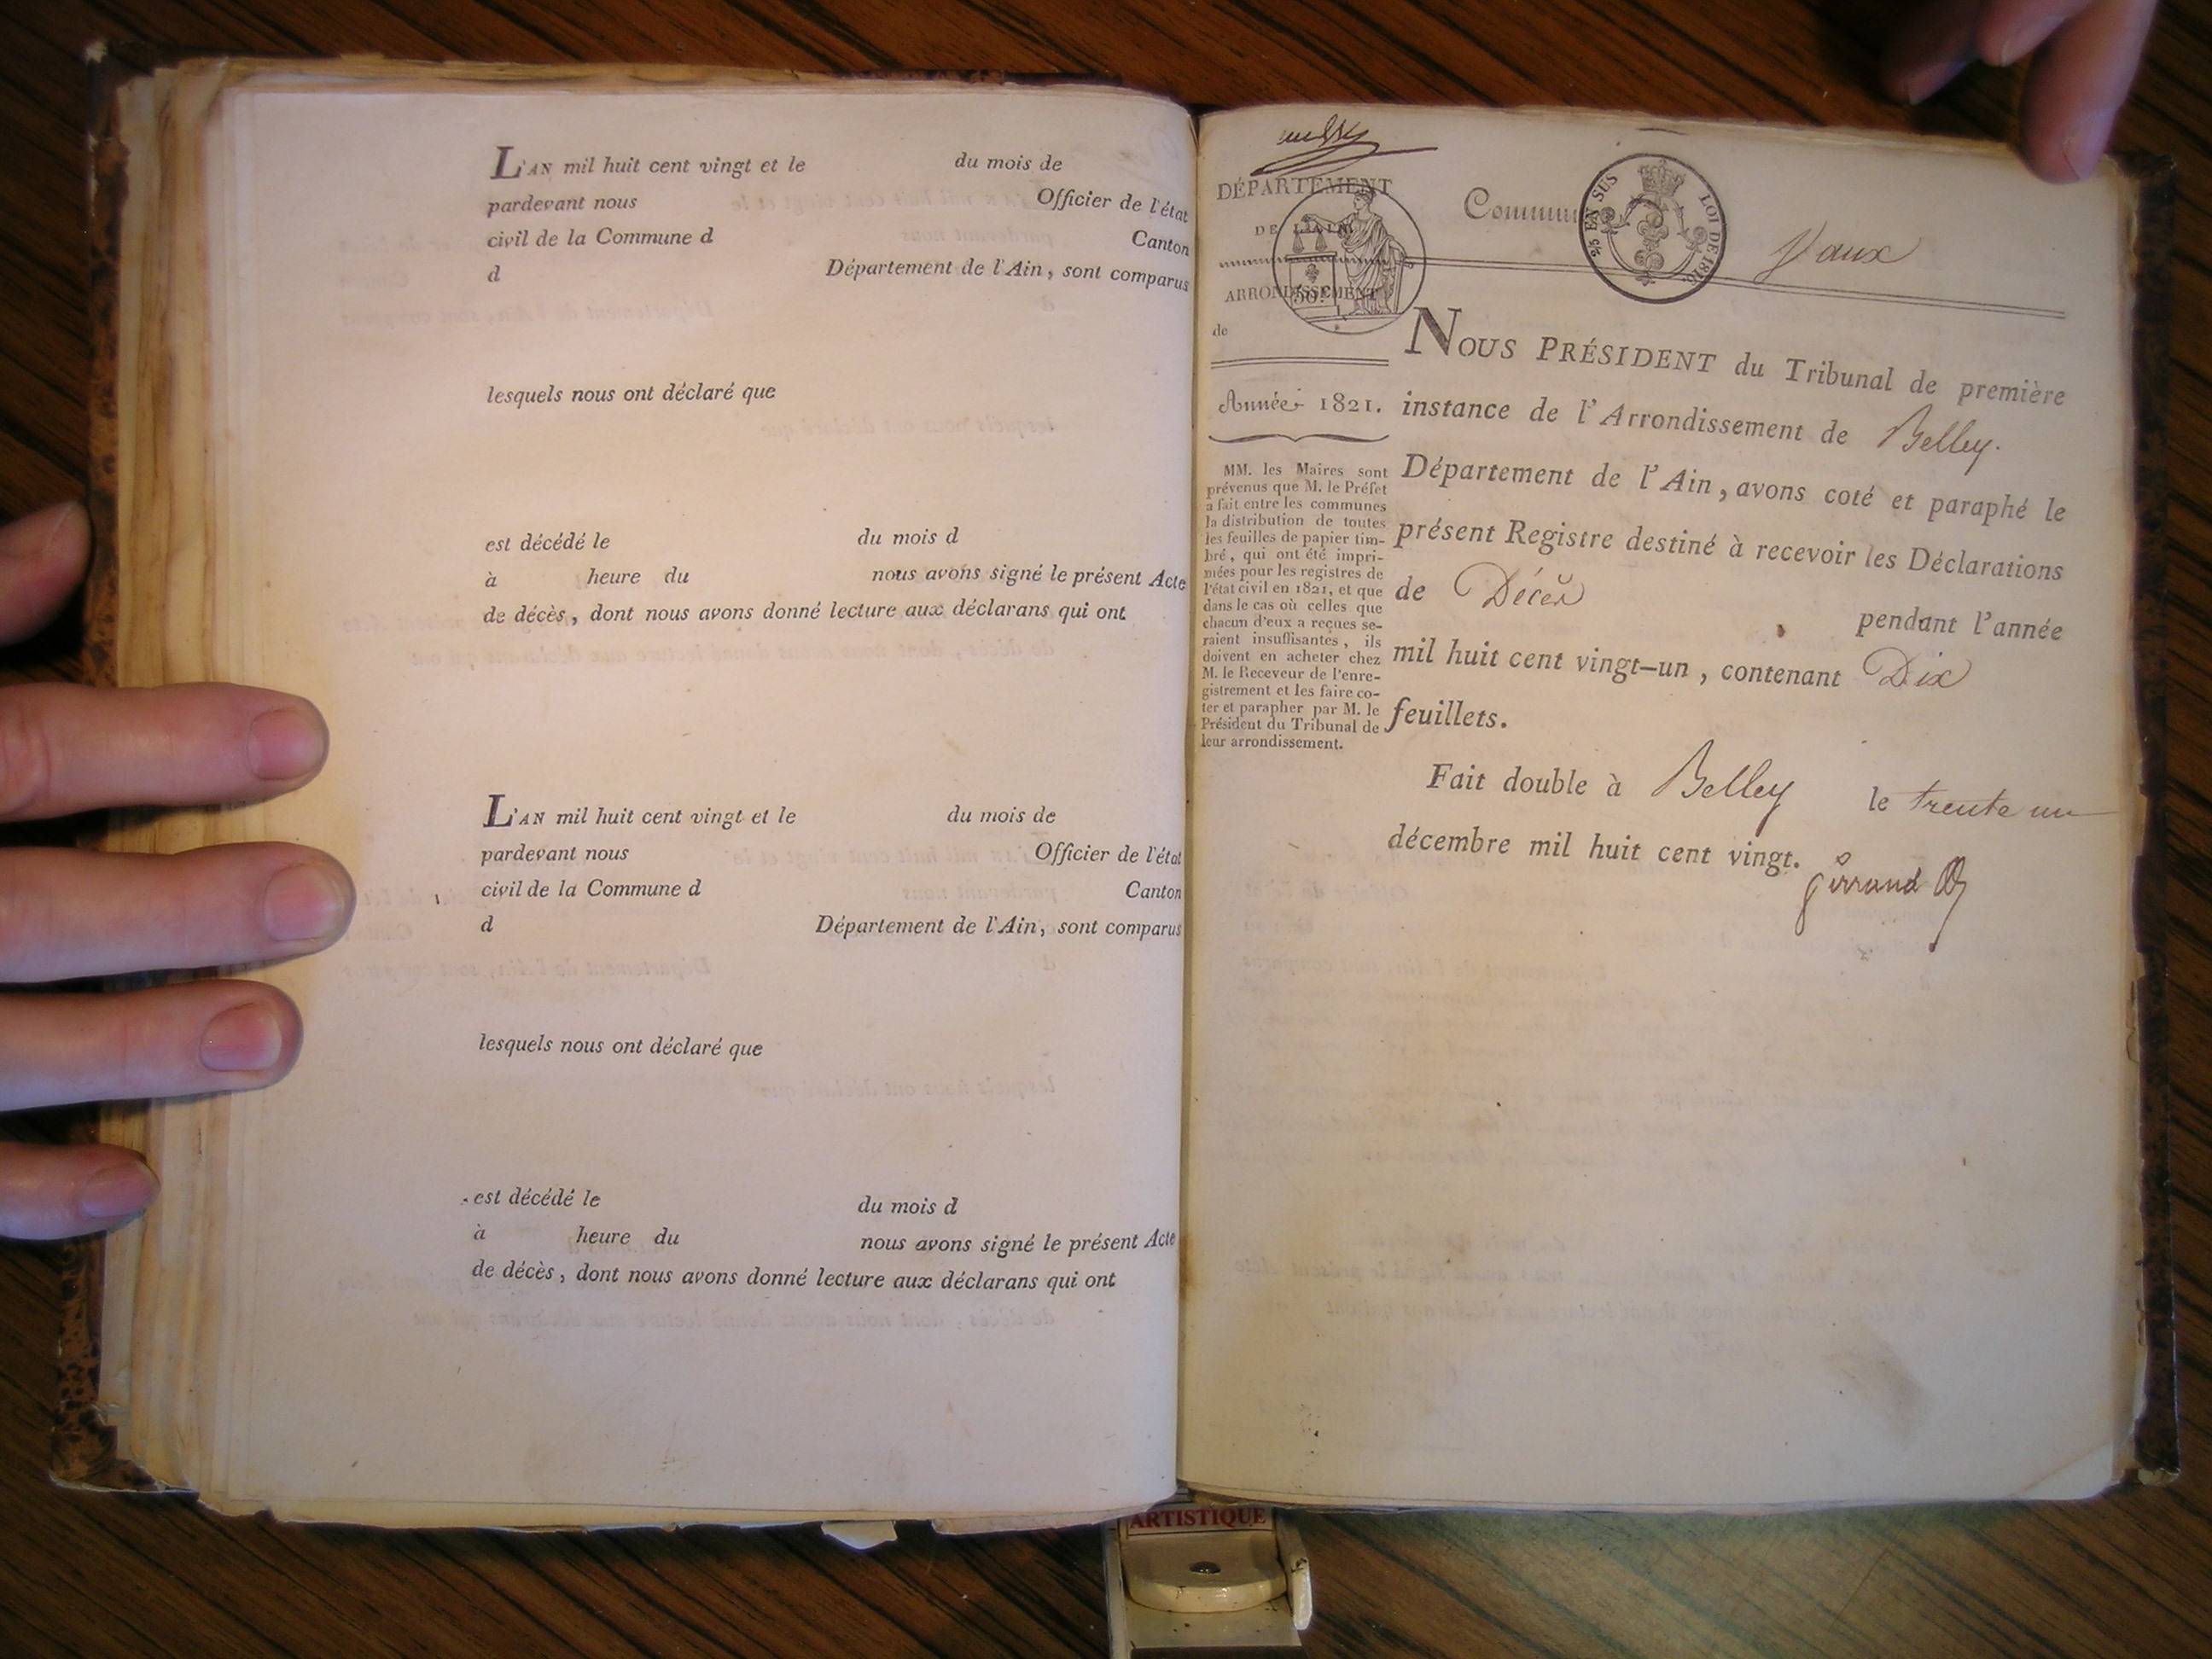 L'AN mil huit cent vingt et le du mois de
pardevant nous Officier de l'état
civil de la Commune d Canton
d Département de l'Ain, sont comparus
lesquels nous ont déclaré que
est décédé le du mois d
à heure du nous avons signé le présent Acte
de décès, dont nous avons donné lecture aux déclarans qui ont
L'AN mil huit cent vingt et le du mois de
pardevant nous Officier de l'état
civil de la Commune d Canton
d Département de l'Ain, sont comparus
lesquels nous ont déclaré que
est décédé le du mois d
à heure du nous avons signé le présent Acte
de décès, dont nous avons donné lecture aux déclarans qui ont
DÉPARTEMENT
DE L'AIN
ARRONDISSEMENT
de
Année 1821.
MM. les Maires sont
prévenus que M. le Préfet
a fait entre les communes
la distribution de toutes
les feuilles de papier tim-
bré, qui ont été impri-
mées pour les registres de
l'état civil en 1821, et que
dans le cas où celles que
chacun d'eux a reçues se-
raient insuffisantes, ils
doivent en acheter chez
M. le Receveur de l'enre-
gistrement et les faire co-
ter et parapher par M. le
Président du Tribunal de
leur arrondissement.
Commun Vaux
EN SUS LOI DE 1816
NOUS PRÉSIDENT du Tribunal de première
instance de l'Arrondissement de Belley.
Département de l'Ain, avons coté et paraphé le
présent Registre destiné à recevoir les Déclarations
de Décès
pendant l'année
mil huit cent vingt-un, contenant Dix
feuillets.
Fait double à Belley le trente un
décembre mil huit cent vingt.
ARTISTIQUE